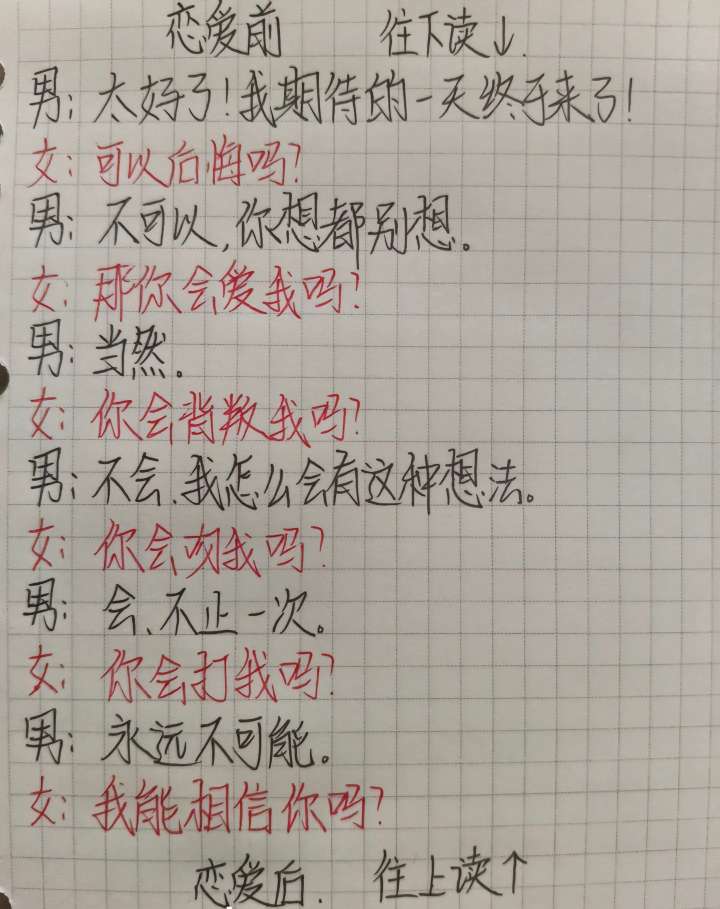 恋爱前 往下读↓.
男: 太好了!我期待的一天终于来了!
女: 可以后悔吗?
男: 不可以,你想都别想。
女: 那你会爱我吗?
男: 当然。
女: 你会背叛我吗?
男: 不会、我怎么会有这种想法。
女: 你会吻我吗?
男: 会、不止一次。
女: 你会打我吗?
男: 永远不可能。
女: 我能相信你吗?
恋爱后. 往上读↑